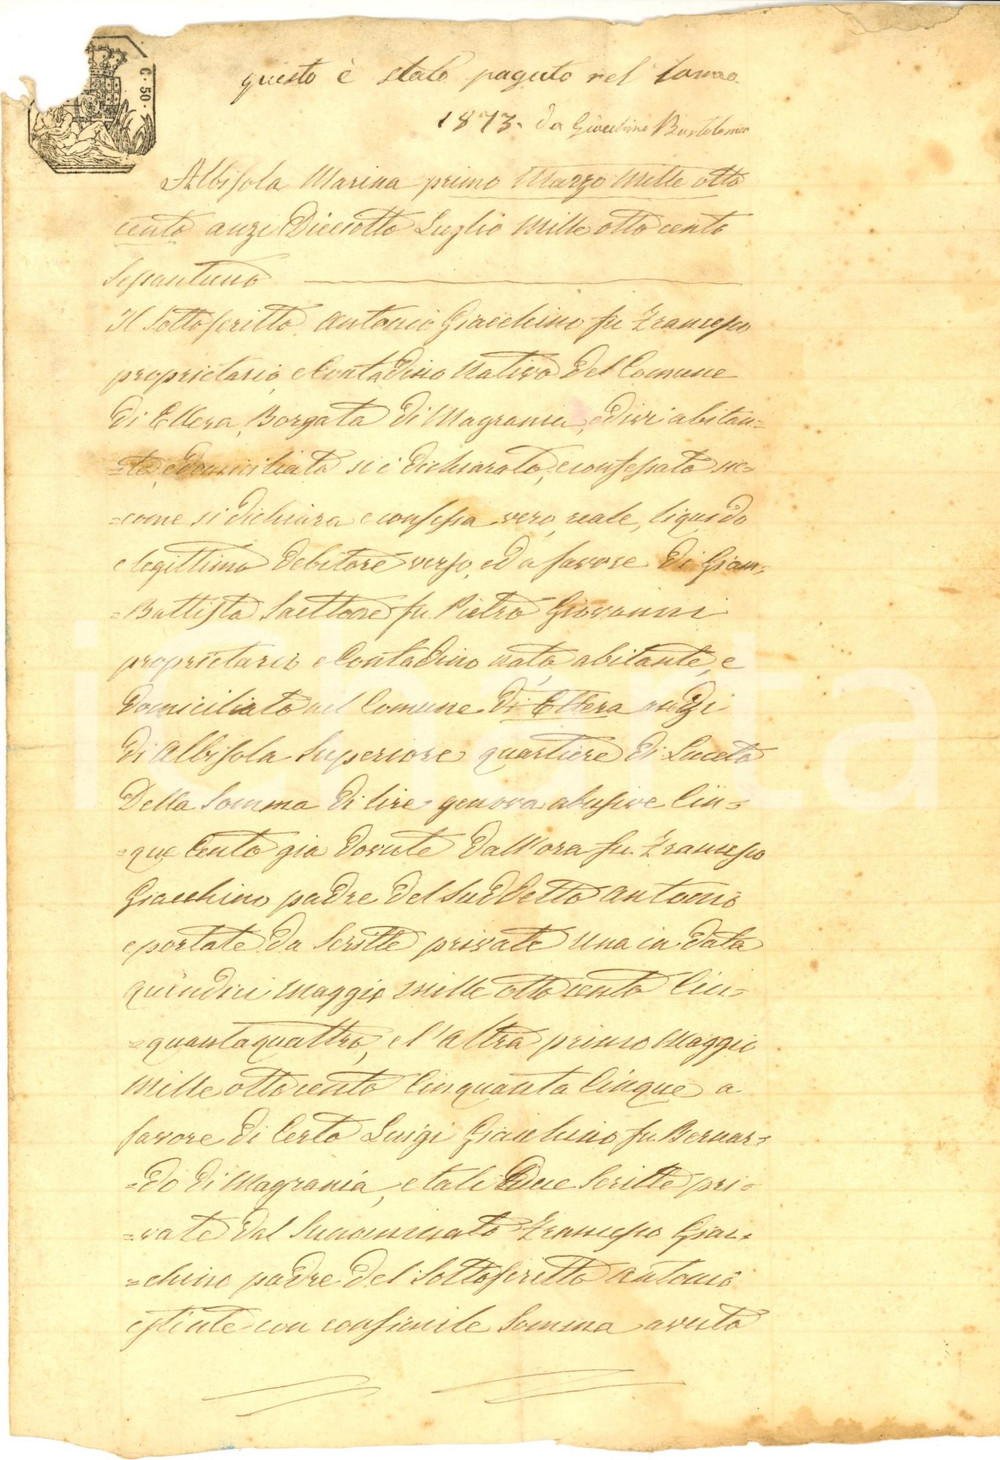 C. 50.
questo è stato pagato nel
1873. da Giacchino Bortolomeo
Albisola Marina primo Marzo Mille otto
cento anzi Dieciotto Luglio Mille otto cento
Sepantuno
Il Sottoscritto Antonio Giacchino fu Francesco
proprietario, e Contadino Nativo Del Comune
Di Ellera, Borgata Di Magrania, ed ivi abitan=
=te, e domiciliato si è dichiarato, e confessato sic=
=come si dichiara e confessa vero, reale, liquido
e legittimo Debitore verso, ed a favore Di Giam=
=Battista Saettone fu Pietro Giovanni
proprietario e Contadino nato, abitante, e
Domiciliato nel Comune Di Ellera anzi
Di Albisola Superiore quartiere Di Luceto
Della Somma Di lire genova abusive Cin=
=que Cento già Dovute Dall'ora fu Francesco
Giacchino padre Del Suddetto Antonio
e portate Da Scritte private Una in Data
quindici Maggio Mille otto cento Cin=
=quantaquattro, e l'altra primo Maggio
Mille otto cento Cinquanta Cinque a
favore Di Certo Luigi Giacchino fu Bernar=
=Do Di Magrania, e tali Due Scritte pri=
=vate Dal Francesco Giac=
=chino padre Del Sottoscritto Antonio
estinte con consimile Somma avuta
iCharta